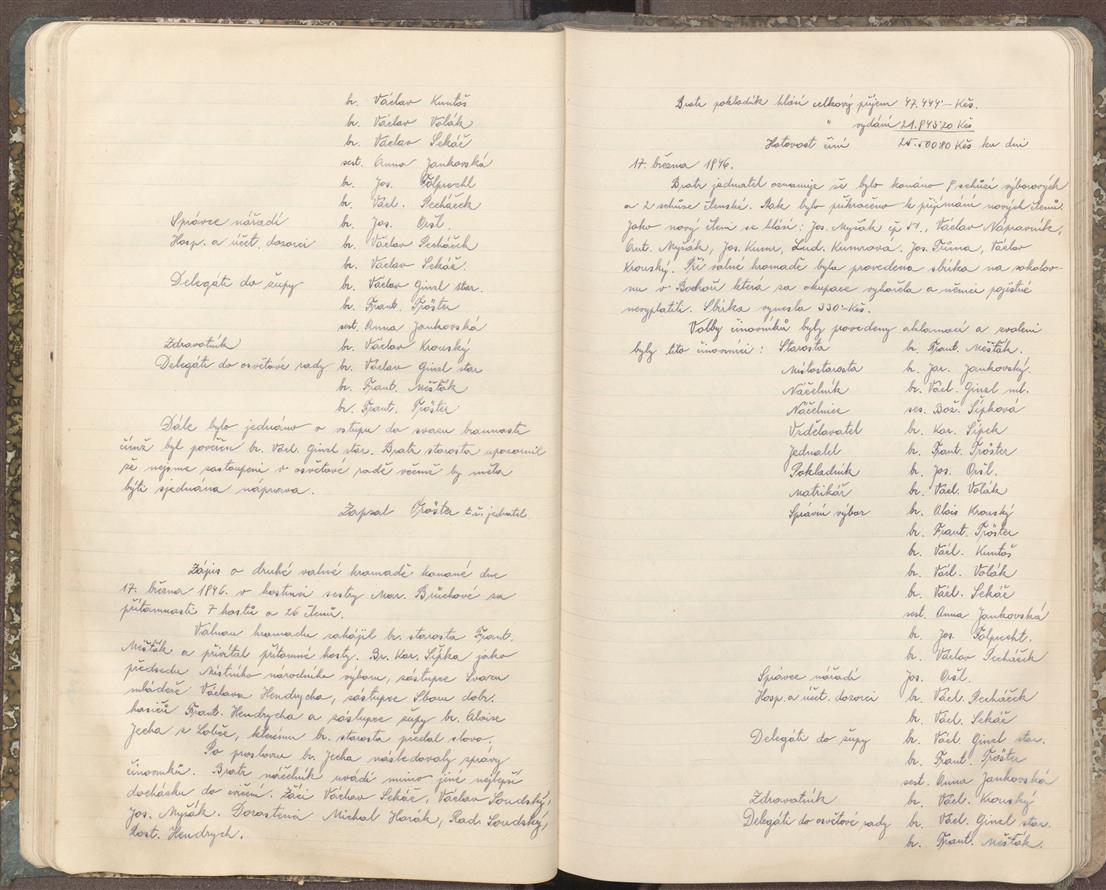 br. Václav Kuntoš
br. Václav Volák
br. Václav Sekáč
sest. Anna Jankovská
br. Jos. Folprecht
br. Václ. Pecháček
Správce nářadí br. Jos. Oršl.
Hosp. a účet. dozorci br. Václav Pecháček
br. Václav Sekáč.
Delegáti do župy br. Václav Ginzl star.
br. Frant. Tröster
sest. Anna Jankovská
Zdravotník br. Václav Krouský
Delegáti do osvětové rady br. Václav Ginzl star
br. Frant. Mešťák
br. Frant. Tröster
Dále bylo jednáno o vstupu do svazu brannosti
čímž byl pověřen br. Václ. Ginzl star. Bratr starosta upozornil
že nejsme zastoupeni v osvětové radě věcmě by měla
býti sjednána náprava.
Zapsal Tröster t.č. jednatel
Zápis o druhé valné hromadě konané dne
17. března 1946. v hostinci sestry Mar. Bruchové za
přítomnosti 7 hostů a 26 členů.
Valnou hromadu zahájil br. starosta Frant.
Mešťák a přivítal přítomné hosty. Br. Kar. Šípka jako
předsedu Místního národního výboru, zástupce Svazu
mládeže Václava Hendrycha, zástupce Sboru dobr.
hasičů Frant. Hendrycha a zástupce župy br. Aloise
Jecha z Lobče, kterému br. starosta předal slovo.
Po proslovu br. Jecha následovaly zprávy
činovníků. Bratr náčelník uvádí mimo jiné nejlepší
docházku do cvičení. Žáci Václav Sekáč, Václav Soudský,
Jos. Myšák. Dorostenci Michal Horák, Rad. Soudský,
Rost. Hendrych.
Bratr pokladník hlásí celkový příjem 47.444·– Kčs.
" vydání 21.943·20 Kčs
Hotovost činí 25.500·80 Kčs ku dni
17. března 1946.
Bratr jednatel oznamuje že bylo konáno 9 schůzí výborových
a 2 schůze členské. Pak bylo přikročeno k přijímání nových členů.
Jako noví členi se hlásí: Jos. Myšák čp 51., Václav Nápravník,
Ant. Myšák, Jos. Kumr, Lud. Kumrová, Jos. Tůma, Václav
Krouský. Při valné hromadě byla provedena sbírka na sokolov-
nu v Bochoři která za okupace vyhořela a němci pojistné
nevyplatili. Sbírka vynesla 330·– Kčs.
Volby činovníků byly povedeny aklamací a zvoleni
byly tito činovníci: Starosta br. Frant. Mešťák.
Místostarosta br. Jar. Jankovský.
Náčelník br. Václ. Ginzl ml.
Náčelnice ses. Bož. Šípková
Vzdělavatel br. Kar. Šípek
Jednatel br. Frant. Tröster
Pokladník br. Jos. Oršl.
Matrikář br. Václ. Volák
Správní výbor br. Alois Krouský
br. Frant. Tröster
br. Václ. Kuntoš
br. Václ. Volák
br. Václ. Sekáč
sest. Anna Jankovská
br. Jos. Folprecht.
br. Václav Pecháček
Správce nářadí Jos. Oršl.
Hosp. a účet. dozorci br. Václ. Pecháček
br. Václ. Sekáč
Delegáti do župy br. Václ. Ginzl star.
br. Frant. Tröster
sest. Anna Jankovská
Zdravotník br. Václ. Krouský
Delegáti do osvětové rady br. Václ. Ginzl star.
br. Frant. Mešťák.